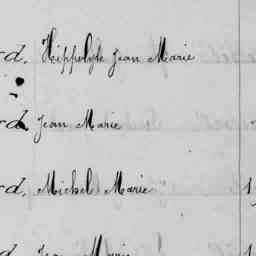 rd, Hippolyte Jean Marie
rd, Jean Marie
rd, Michel Marie
rd, Jean Marie